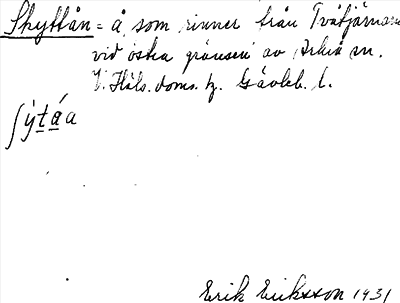 Skyttån = å, som rinner från Tvåtjärnarna
vid östra gränsen av Arbrå sn.
V. Häls. doms. h. Gävleb. l.
ʃy̍t̲á̲a
Erik Eriksson 1931